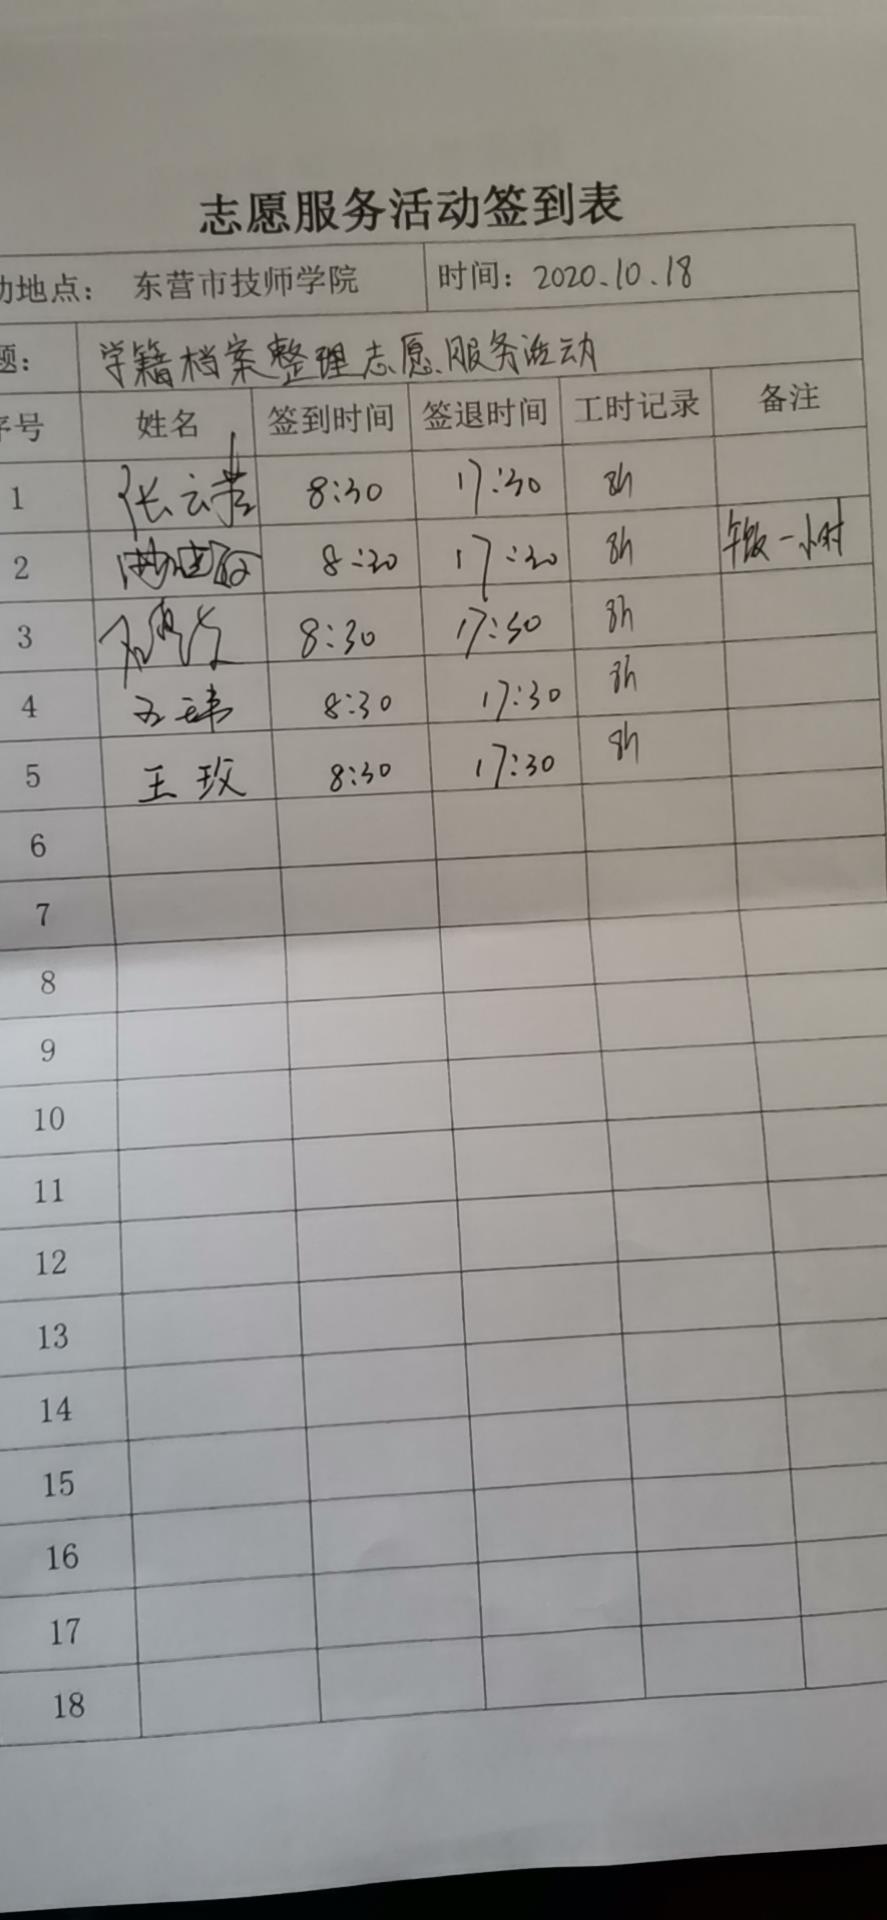 志愿服务活动签到表
动地点： 东营市技师学院 时间：2020.10.18
题： 学籍档案整理志愿服务活动
序号 姓名 签到时间 签退时间 工时记录 备注
1 张云 8:30 17:30 8h
2 8:30 17:30 8h 午饭一小时
3 8:30 17:30 8h
4 8:30 17:30 8h
5 王玫 8:30 17:30 8h
6
7
8
9
10
11
12
13
14
15
16
17
18